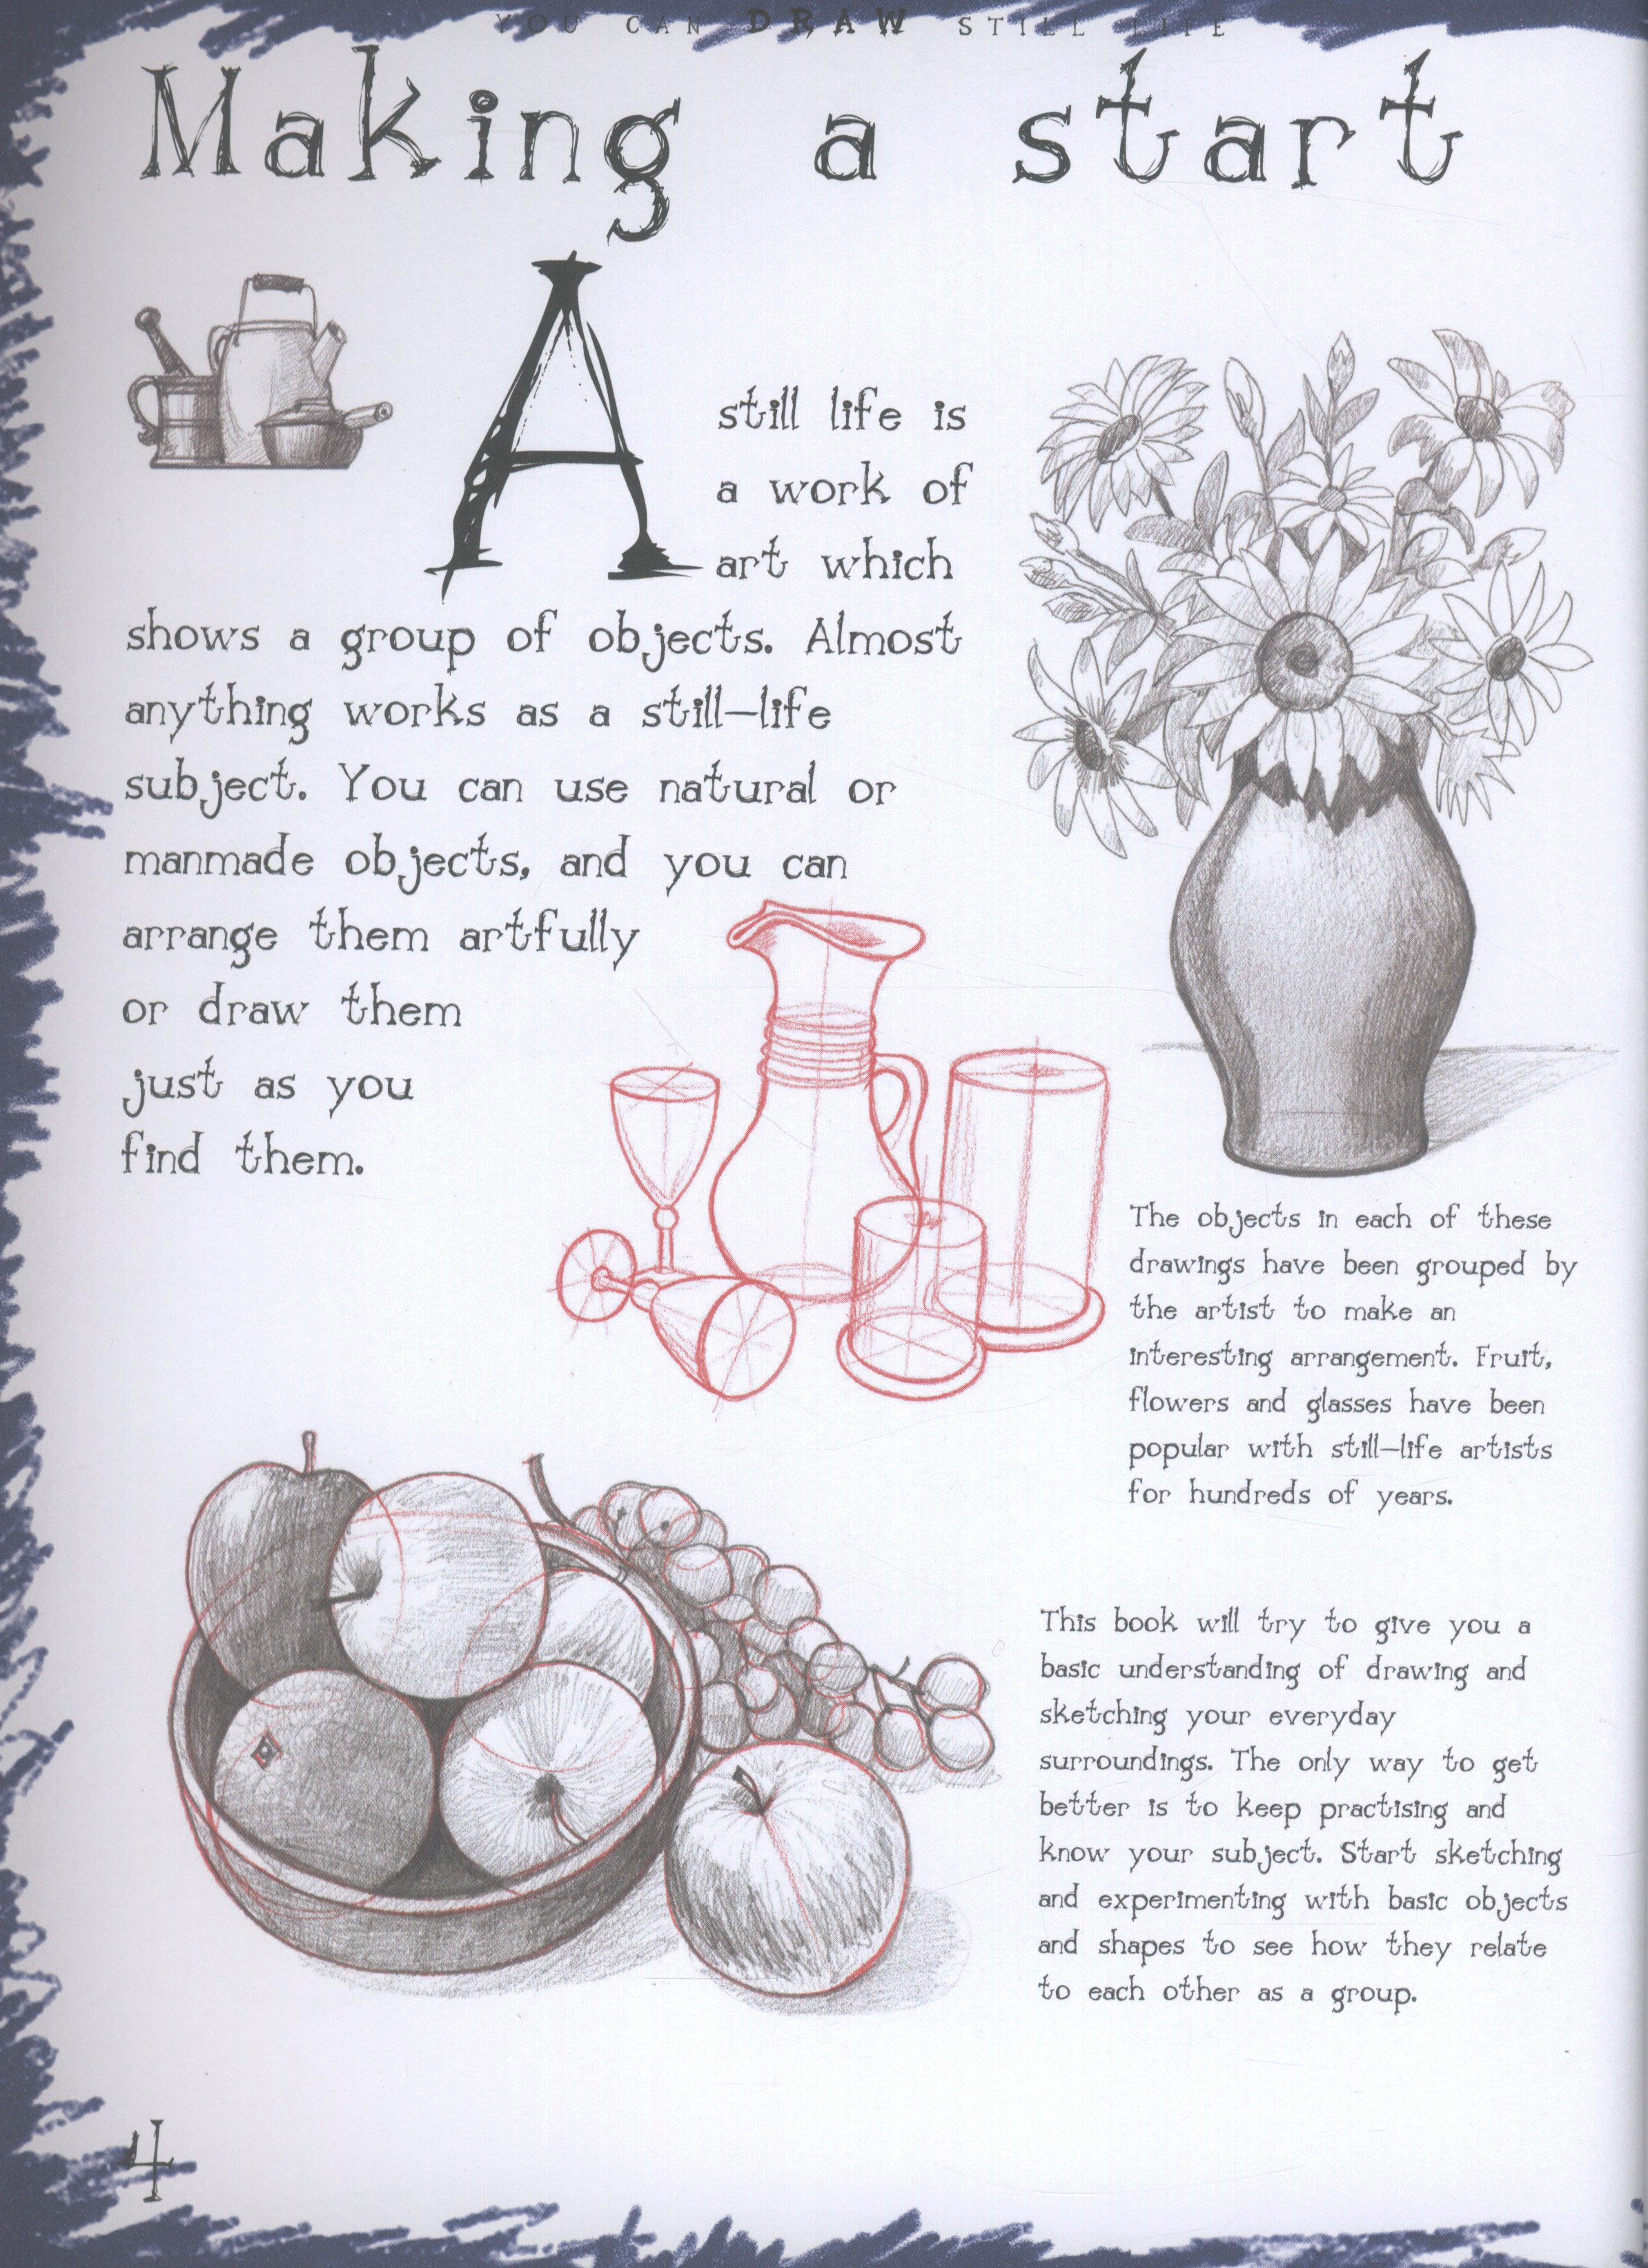 YOU CAN DRAW STILL LIFE
Making a start
A still life is
a work of
art which
shows a group of objects. Almost
anything works as a still-life
subject. You can use natural or
manmade objects, and you can
arrange them artfully
or draw them
just as you
find them.
The objects in each of these
drawings have been grouped by
the artist to make an
interesting arrangement. Fruit,
flowers and glasses have been
popular with still-life artists
for hundreds of years.
This book will try to give you a
basic understanding of drawing and
sketching your everyday
surroundings. The only way to get
better is to keep practising and
know your subject. Start sketching
and experimenting with basic objects
and shapes to see how they relate
to each other as a group.
4